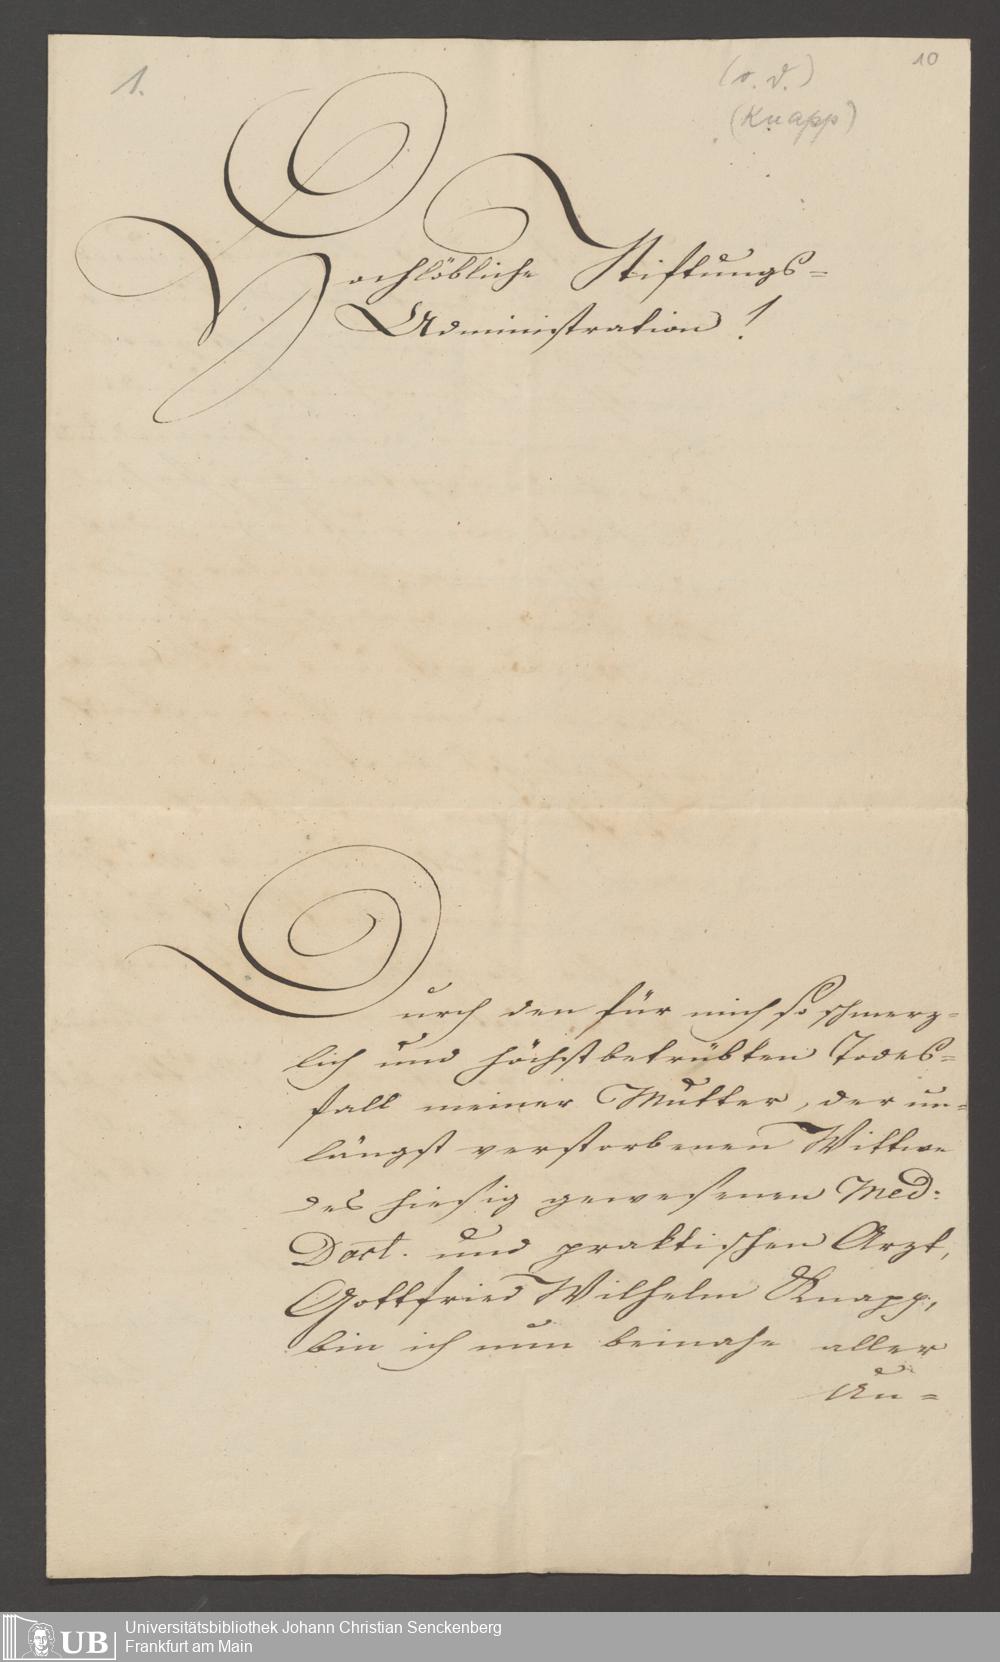 1.
10
(o. d.)
(Knapp)
Hochlöbliche Stiftungs-
Administration!
Durch den für mich so schmerz-
lich und höchstbetrübten Todes-
fall meiner Mutter, der un-
längst verstorbenen Wittwe
des hiesig gewesenen Med:
Doct. und praktischen Arzt,
Gottfried Wilhelm Knapp,
bin ich nun beinahe aller
Un-
UB
Universitätsbibliothek Johann Christian Senckenberg
Frankfurt am Main